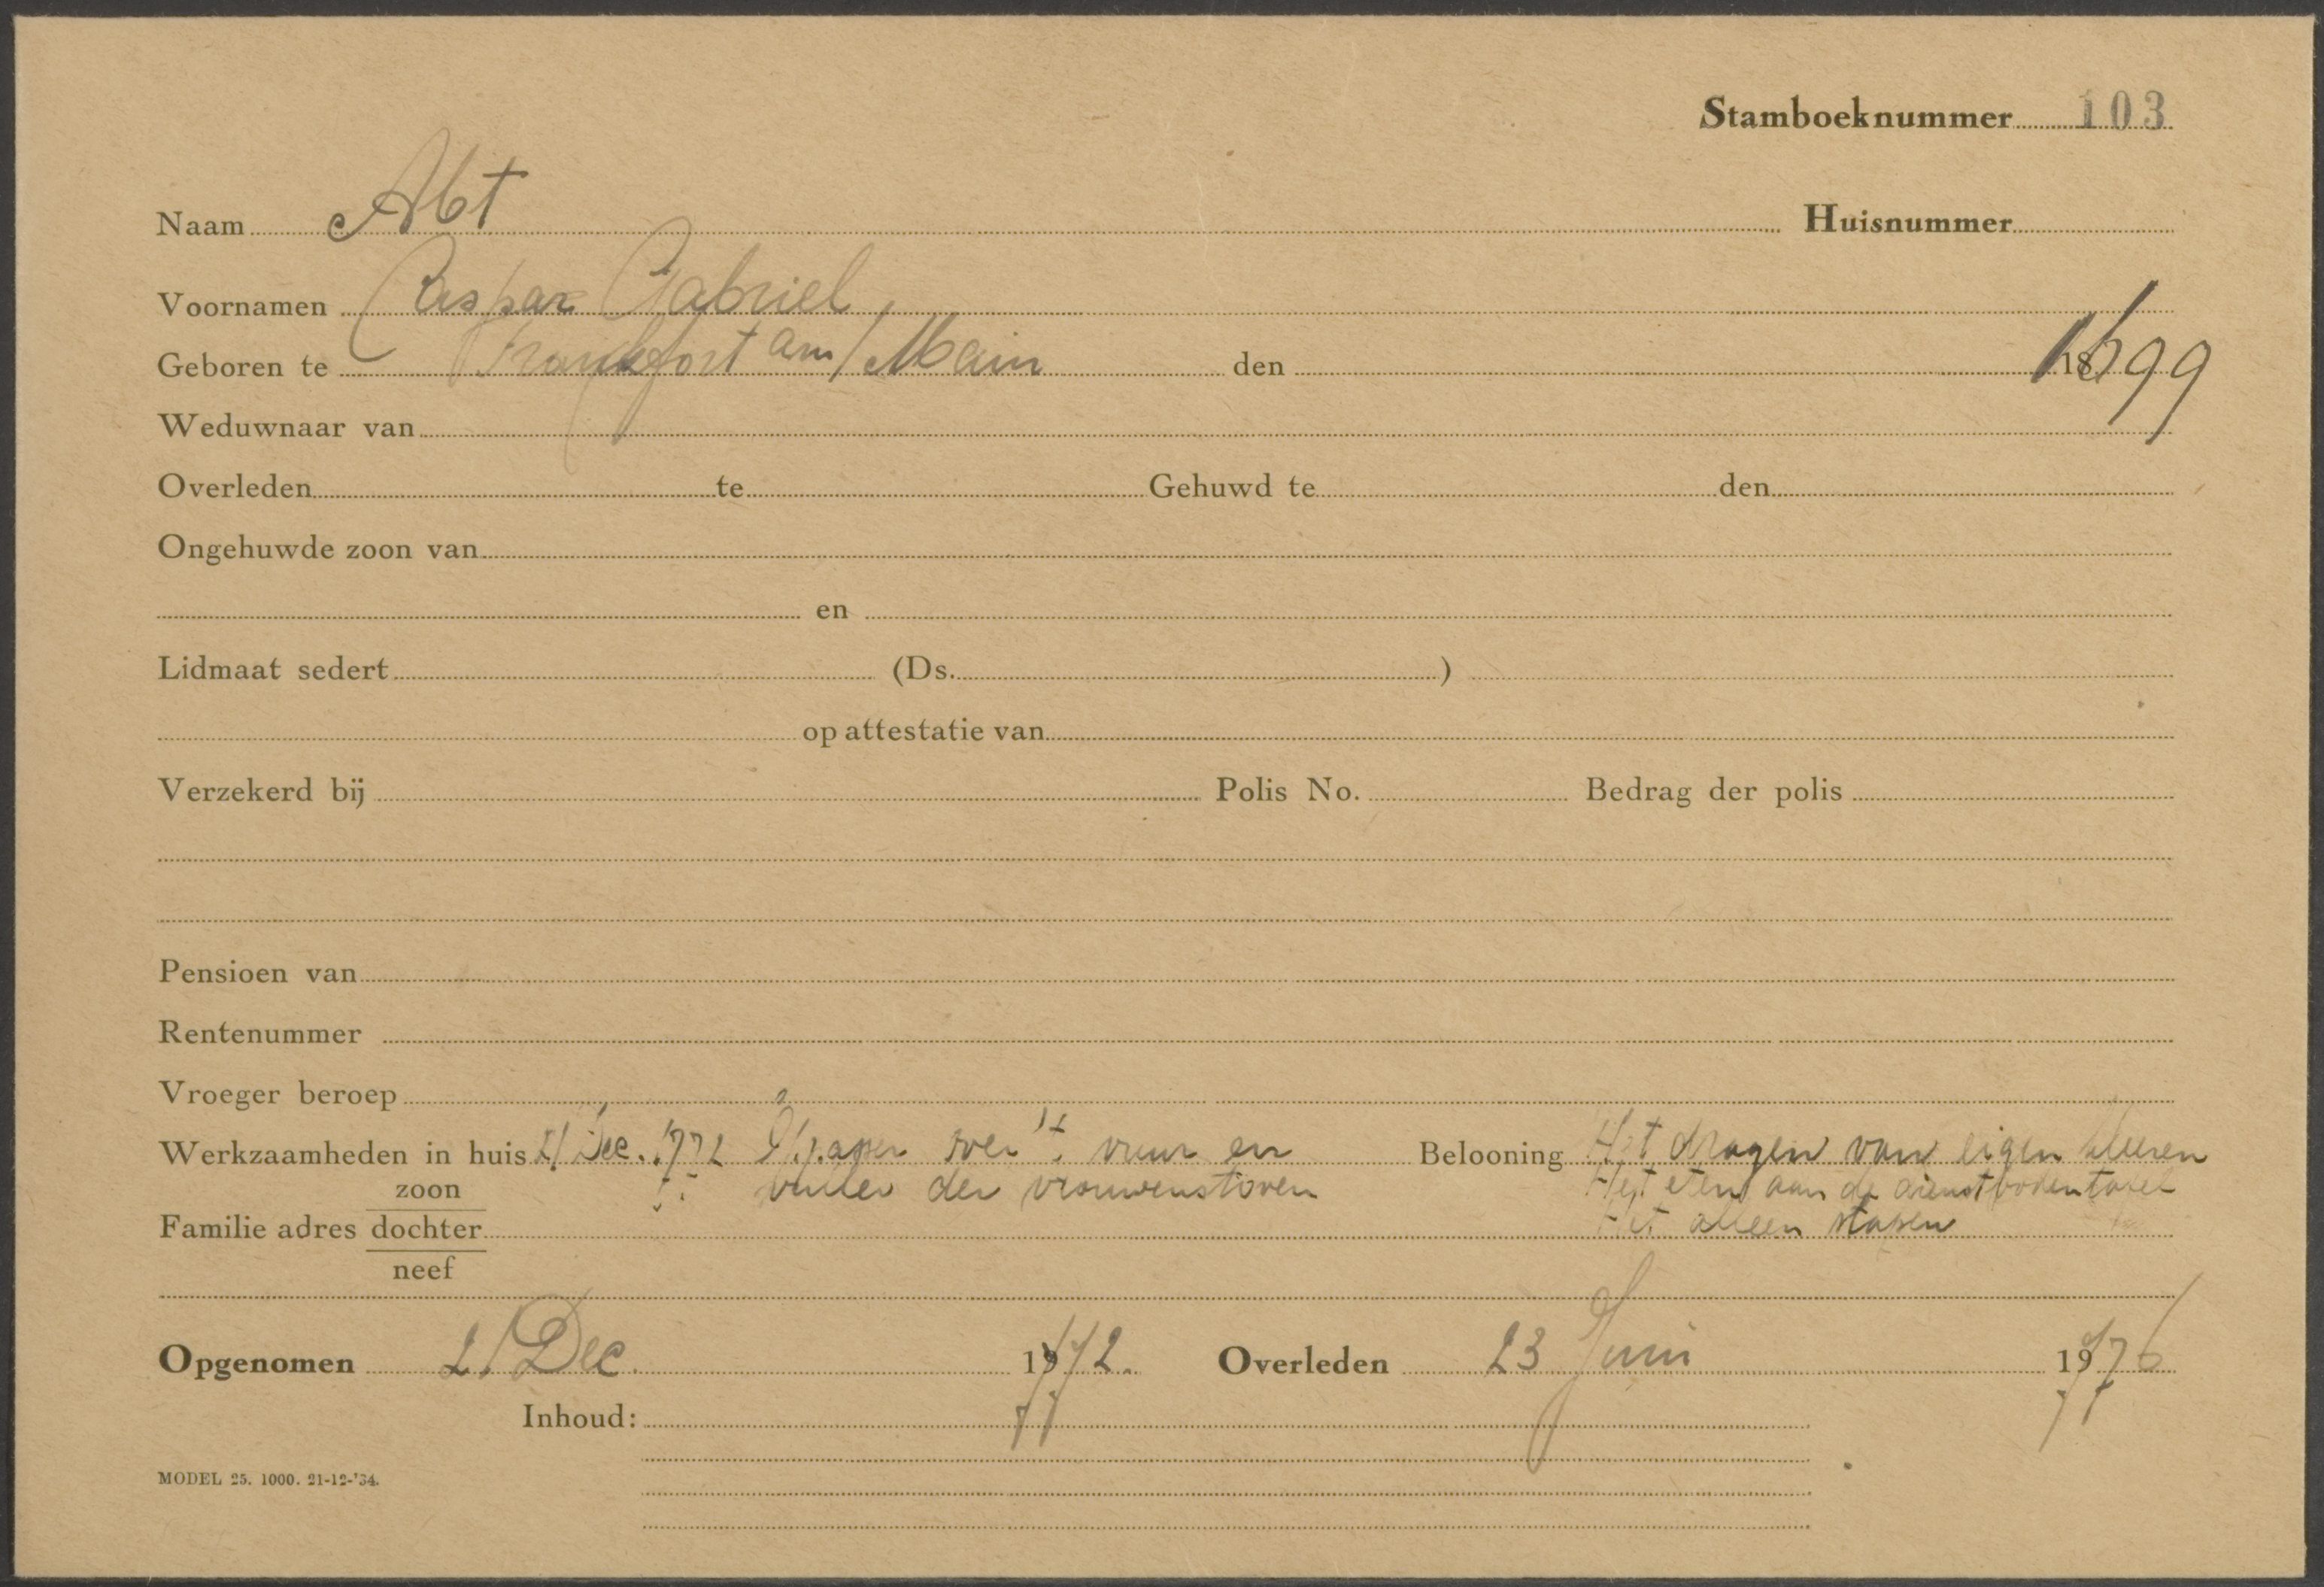 Stamboeknummer 103
Naam Abt Huisnummer
Voornamen Caspar Gabriel
Geboren te Frankfort am/Main den 1699
Weduwnaar van
Overleden te Gehuwd te den
Ongehuwde zoon van
en
Lidmaat sedert (Ds. )
op attestatie van
Verzekerd bij Polis No. Bedrag der polis
Pensioen van
Rentenummer
Vroeger beroep
Werkzaamheden in huis 21 Dec. 1772 over 't vuur en Belooning Het dragen van eigen kleeren
zoon vuller der vrouwenstoven Het eten aan de dienstbodentafel
Familie adres dochter Het alleen slapen
neef
Opgenomen 21 Dec. 1772. Overleden 23 Juni 1776
Inhoud:
MODEL 25. 1000. 21-12-'34.